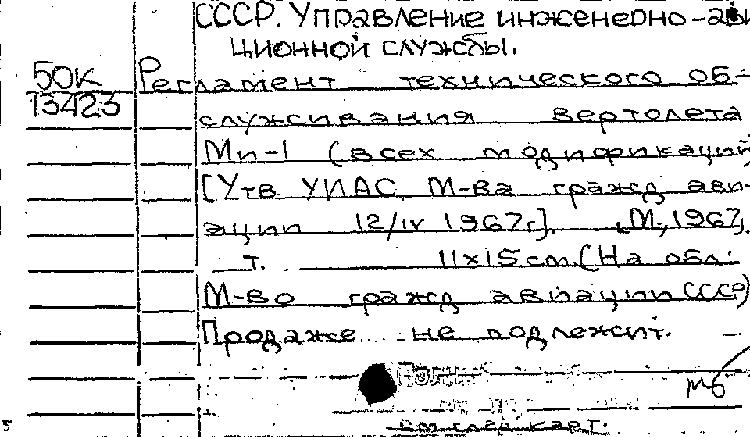 СССР. Управление инженерно-ави
ционной службы.
50К Регламент технического об-
13423 служивания вертолета
Ми-1 (всех модификаций)
[Утв УИАС М-ва гражд ави-
ации 12/IV 1967г]. М, 1967,
т. 11х15 см. (На обл:
М-во гражд авиации СССР)
Продаже не подлежит.
м6
см след карт.